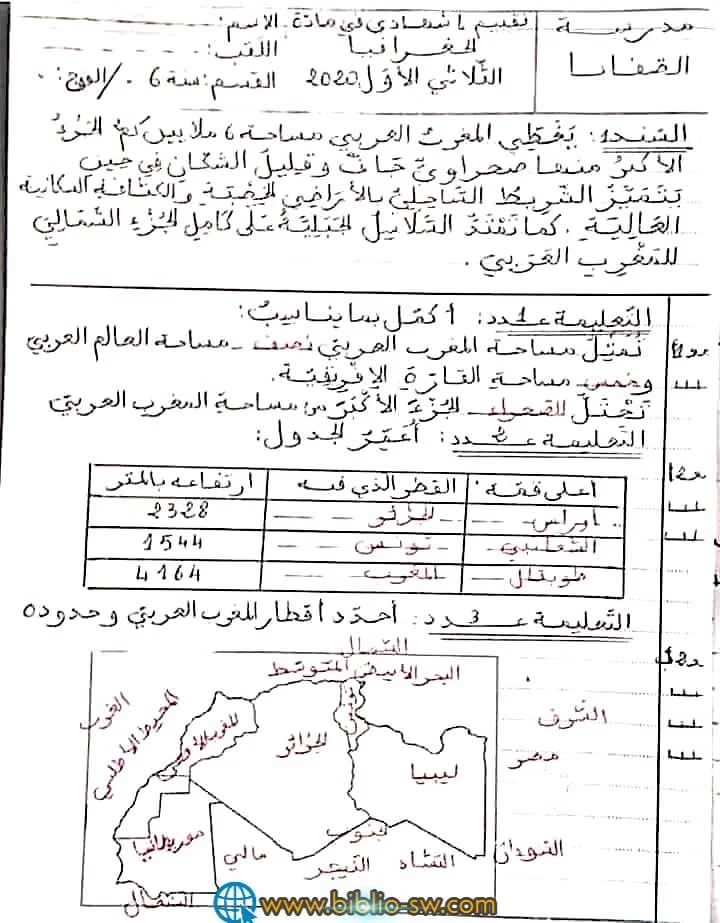 مدرسة
القفايا
تقييم إشهادي في مادة
الجغرافيا
الثلاثي الأول 2020
الاسم:
اللقب:
القسم: سنة 6
السند 1: يغطي المغرب العربي مساحة 6 ملايين كم² الجزء
الأكبر منها صحراوي جاف وقليل السكان في حين
يتميز الشريط الساحلي بالأراضي الخصبة والكثافة السكانية
العالية. كما تمتد السلاسل الجبلية على كامل الجزء الشمالي
للمغرب العربي.
التعليمة عـ1ـدد: أكمل بما يناسب:
تمثل مساحة المغرب العربي نصف مساحة العالم العربي
وخمس مساحة القارة الإفريقية.
تحتل الصحراء الجزء الأكبر من مساحة المغرب العربي
التعليمة عـ2ـدد: أعمر الجدول:
أعلى قمة القطر الذي فيه ارتفاعه بالمتر
أوراس الجزائر 2328
الشعانبي تونس 1544
طوبقال المغرب 4164
التعليمة عـ3ـدد: أحدد أقطار المغرب العربي وحدوده
الشمال
البحر الأبيض المتوسط
الغرب
المحيط الأطلسي
المغرب الأقصى
الجزائر
تونس
ليبيا
الشرق
مصر
السودان
موريطانيا
مالي
جنوب
النيجر
التشاد
السنغال
www.biblio-sw.com